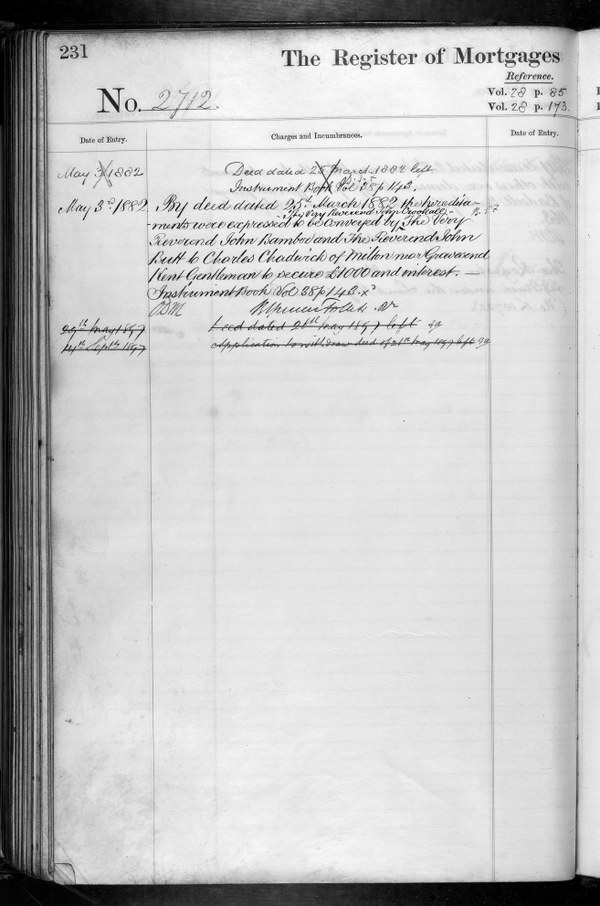 231
The Register of Mortgages
Reference.
No. 2712.
Vol. 28 p. 85
Vol. 28 p. 173.
Date of Entry.
Charges and Incumbrances.
Date of Entry.
May 3 1882
Deed dated 25 March 1882 left
Instrument Book Vol 38 p 143.
May 3rd 1882
By deed dated 25th March 1882 the heredita-
The Very Reverend John Crookall
ments were expressed to be conveyed by The Very
Reverend John Bamber and The Reverend John
Butt to Charles Chadwick of Milton near Gravesend
Kent Gentleman to secure £1000 and interest. —
Instrument Book Vol 38 p 143.
29th May 1897
Deed dated 21st May 1897 left
14th Septr 1897
Application to withdraw deed of 21st May 1897 left